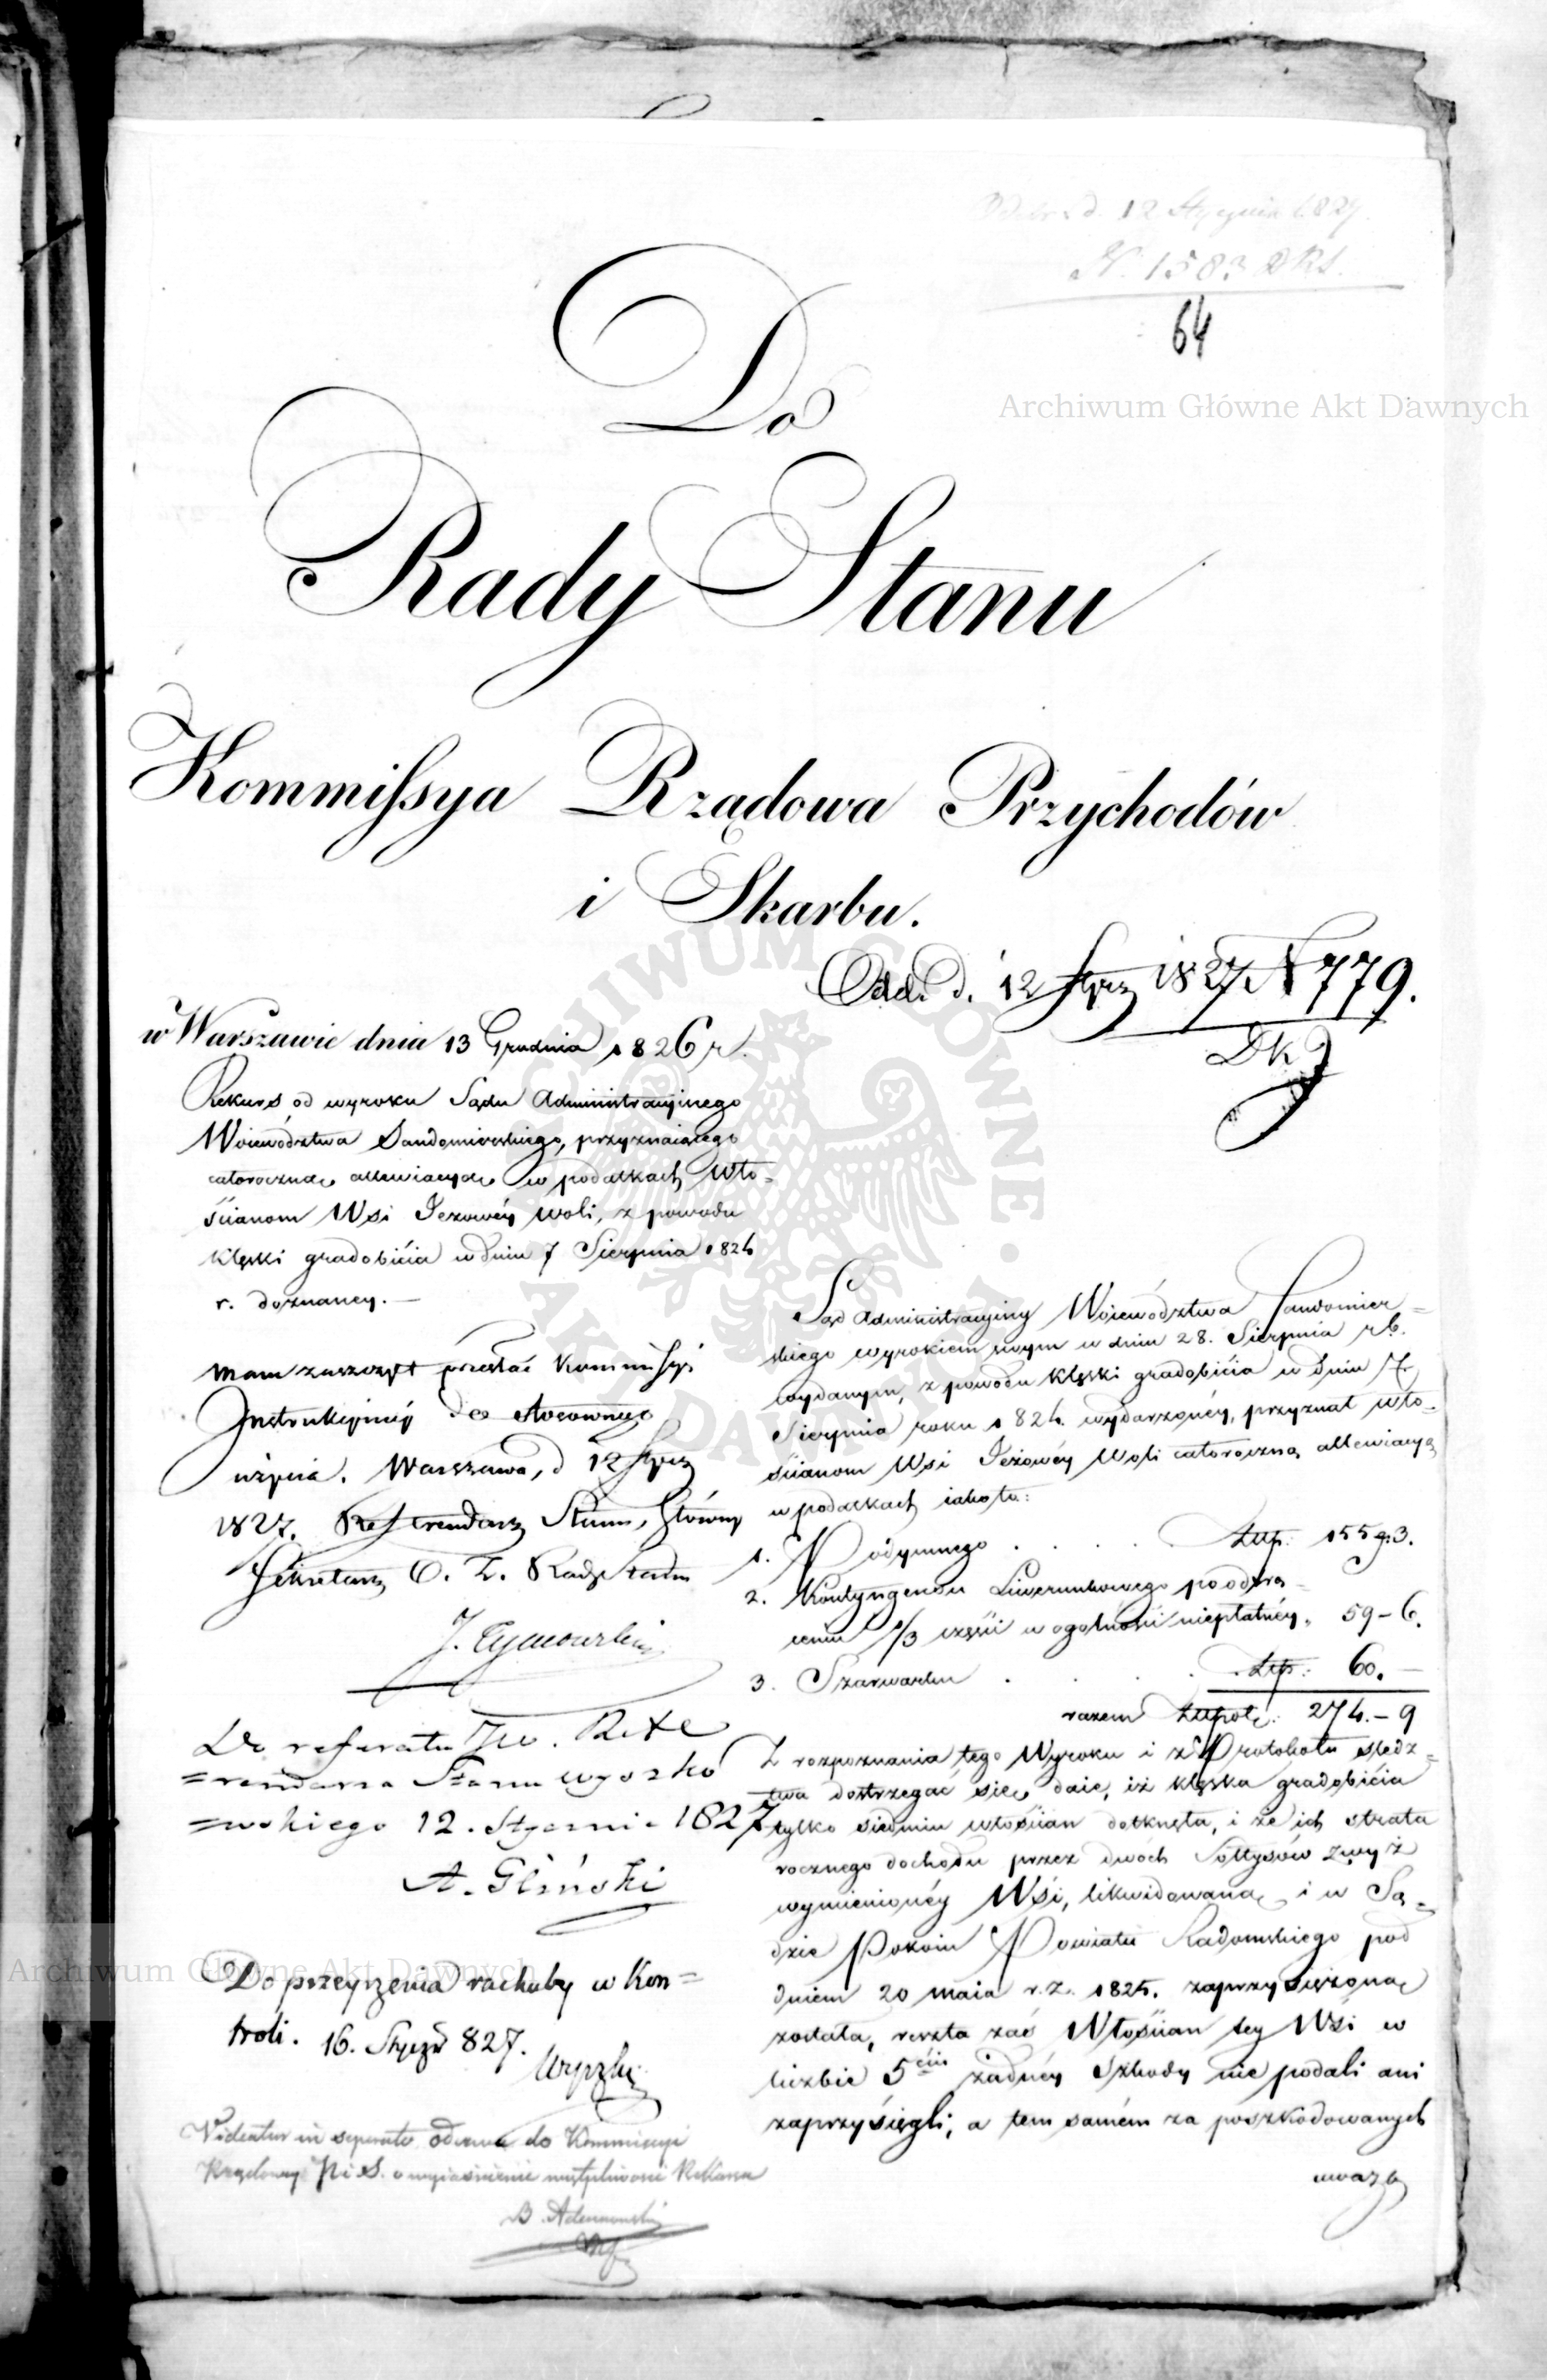 12 Stycznia 1827.
N. 1583 DKS.
64
Archiwum Główne Akt Dawnych
Do
Rady Stanu
Kommissya Rządowa Przychodów
i Skarbu.
Odd. d. 12 Stycz 1827 N 779.
w Warszawie dnia 13 Grudnia 1826 r.
Rekurs od wyroku Sądu Administracyjnego
Woiewództwa Sandomierskiego, przyznaiącego
całoroczną allewiacyą w podatkach Wło=
ścianom Wsi Jeżowéy Woli, z powodu
klęski gradobicia w dniu 7 Sierpnia 1824
r. doznaney.—
Mam zaszczyt przesłać Kommissyi
Instrukcyinéy do stosownego
użycia. Warszawa, d 12 Stycz
1827. Referendarz Stanu, Główny
Sekretarz O. Z. Rady Stanu
J. Tymowski
Do referatu JW. Refe
=rendarza Stanu Wyszko
=wskiego 12. Stycznia 1827
A. Gliński
Do przeyrzenia rachuby w Kon=
troli. 16. Stycz 827.
Videatur in separato odezwa do Kommissyi
Rządowey P i S. o wyiaśnienie
Sąd Administracyiny Woiewództwa Sandomier=
skiego wyrokiem swym w dniu 28. Sierpnia r. b.
wydanym, z powodu klęski gradobicia w dniu 7.
Sierpnia roku 1824. wydarzonéy, przyznał wło=
ścianom Wsi Jeżowéy Woli całoroczną allewiacyą
w podatkach iakoto:
1. Podymnego . . . . . Złp: 155 g. 3.
2. Kontyngensu Liwerunkowego po odtrą=
ceniu 1/3 części w ogólności niepłatnéy „ 59 – 6.
3. Szarwarku . . . . Złp: 60. –
razem Złpol: 274. – 9
Z rozpoznania tego Wyroku i z Protokołu śledz=
twa dostrzegać się daie, iż klęska gradobicia
tylko siedmiu włościan dotknęła, i że ich strata
rocznego dochodu przez dwóch Sołtysów zwyż
wymienionéy Wsi, likwidowaną i w Są=
dzie Pokoiu Powiatu Radomskiego pod
dniem 20 Maia r. z. 1825. zaprzysiężoną
została, reszta zaś Włościan tey Wsi w
liczbie 5ciu żadnéy Szkody nie podali ani
zaprzysięgli; a tem samém za poszkodowanych
uważa
Archiwum Główne Akt Dawnych
ARCHIWUM GŁÓWNE AKT DAWNYCH